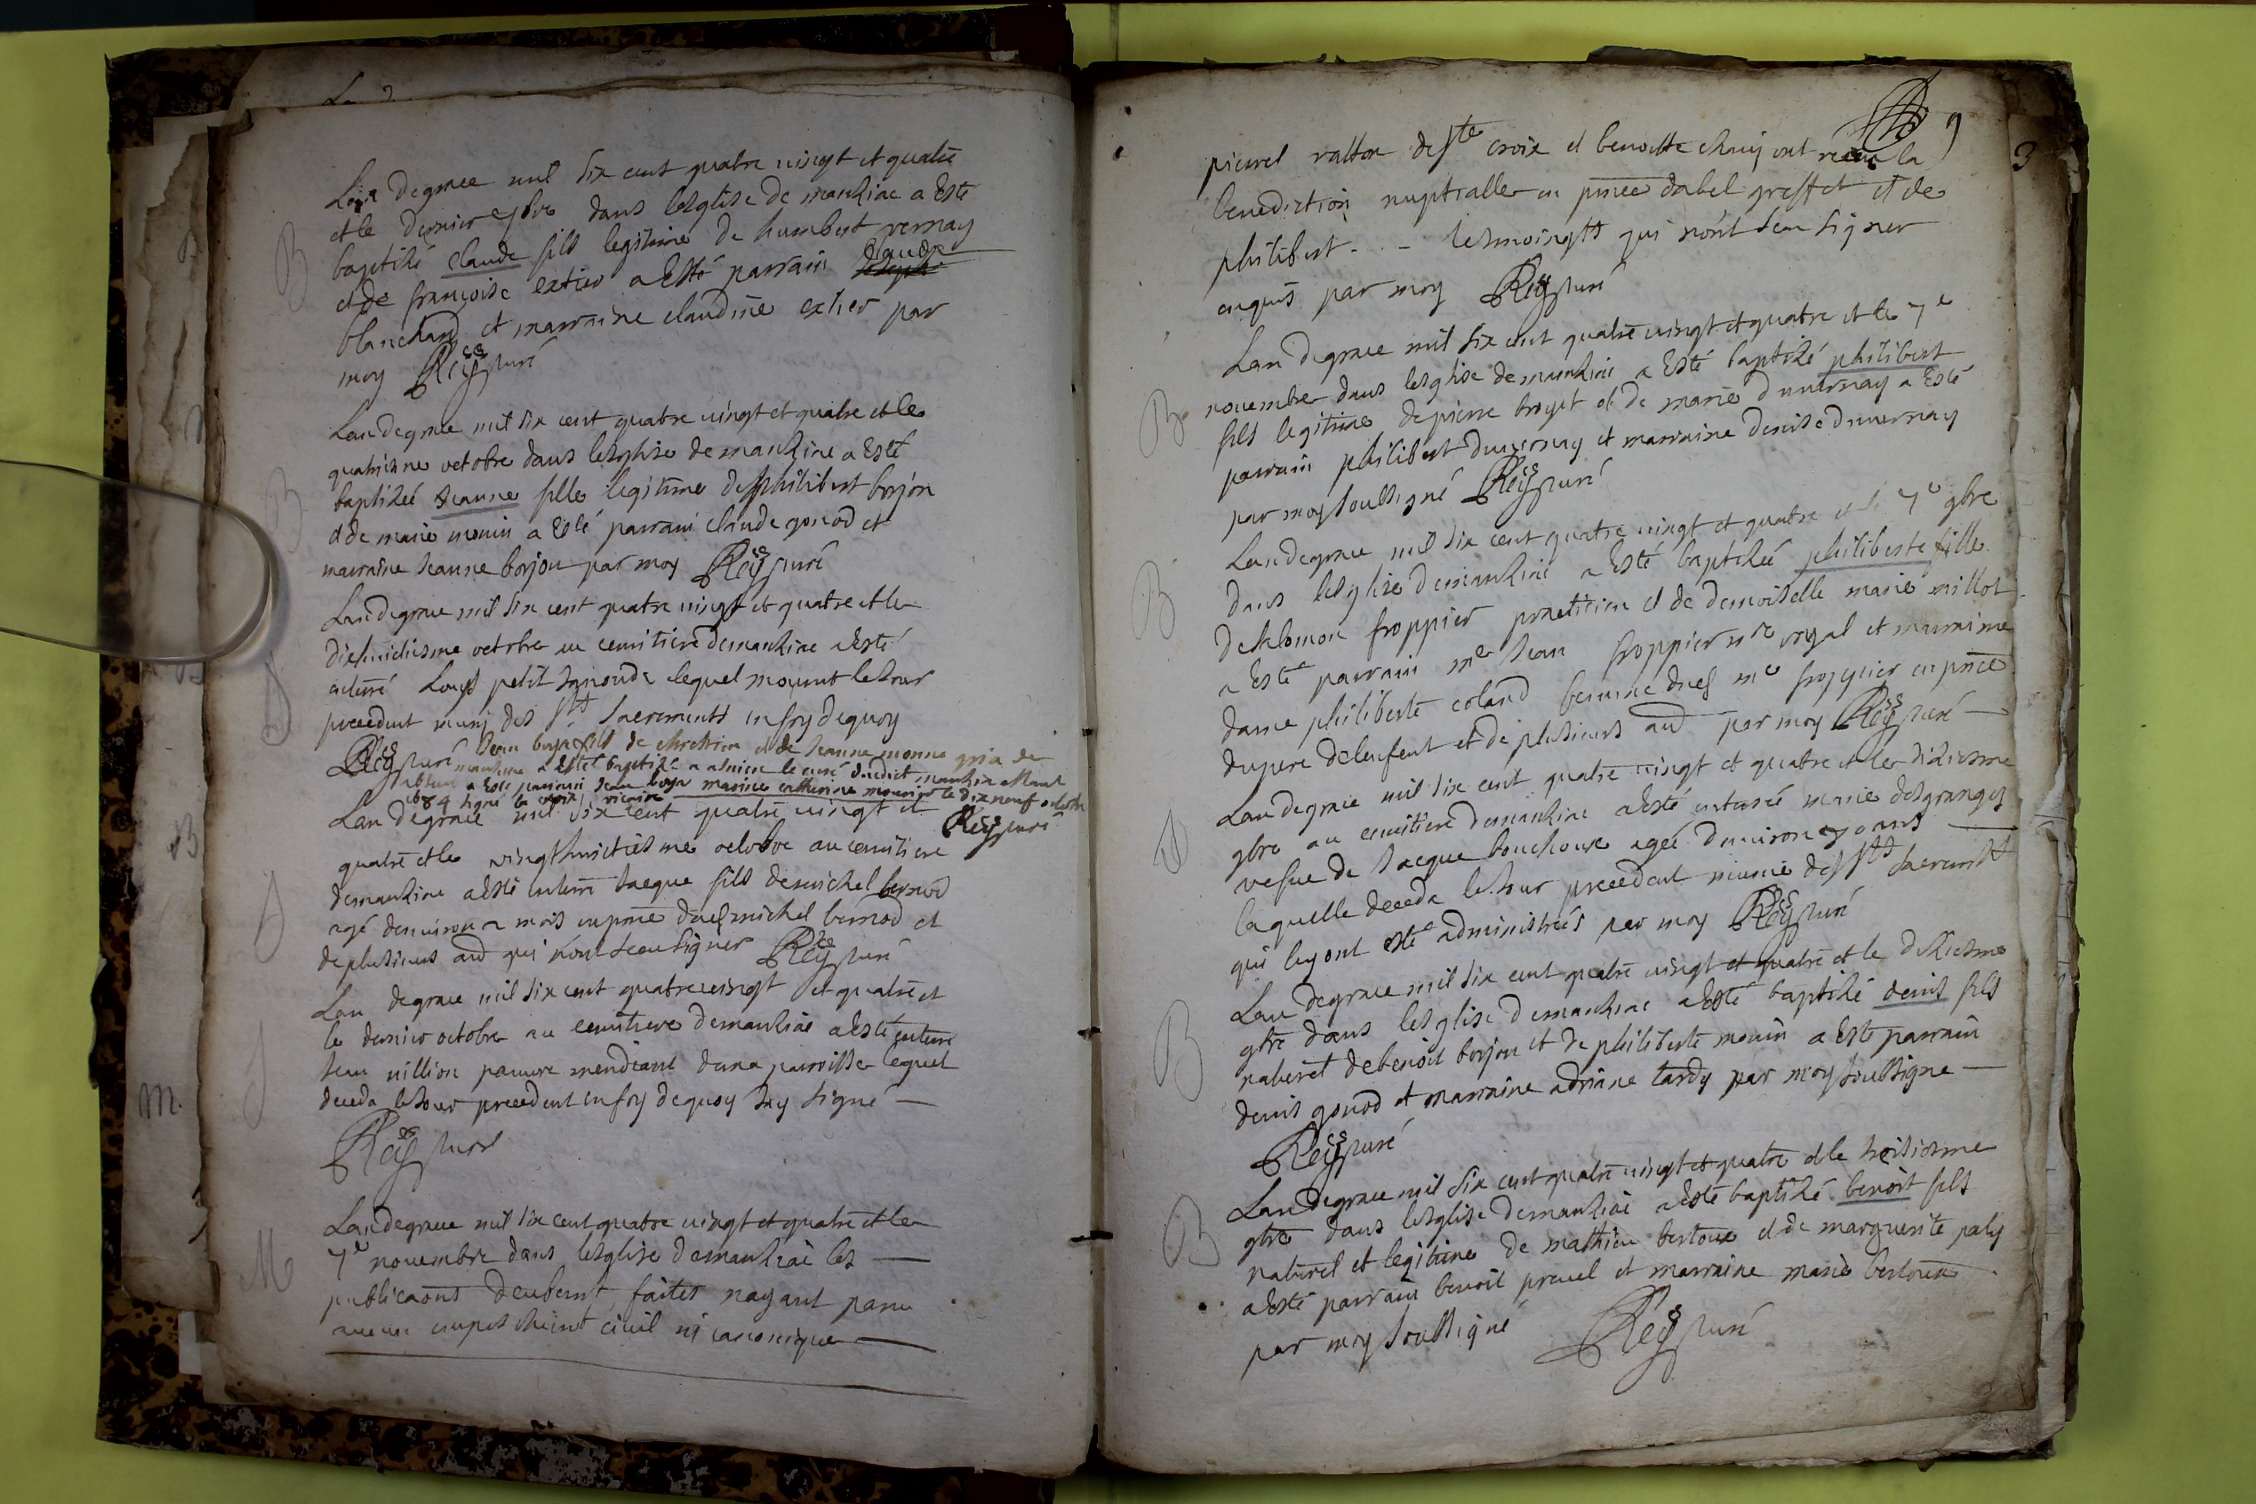 Lan de grace mil six cent quatre vingt et quatre
et le dernier 7bre dans lesglise de manziac a esté
B
baptisé claude fils legitime de humbert vernay
et de françoise extier a esté parrain claude
blanchard et marraine claudine extier par
moy Rey curé
Lan de grace mil six cent quatre vingt et quatre et le
quatriesme octobre dans lesglise de manziac a esté
B
baptizéé Jeanne fille legitime de philibert borjon
et de marie monin a esté parrain claude gonod et
marraine Jeanne borjon par moy Rey curé
Lan de grace mil six cent quatre vingt et quatre et le
dixhuictiesme octobre au cemitiere de manziac a esté
enterré Louys petit lequel mourut le Jour
precedent muny des Sts Sacrements en foy de quoy
Rey curé
Jean fils de et de Jeanne monna
a esté baptizé a le curé dudict
a esté parrain Jean marine catherine monin le dix neuf octobre
1684 signé vicaire
Lan de grace mil six cent quatre vingt et
Rey curé
quatre et le vingthuictiesme octobre au cemitiere
de manziac a esté enterré Jacque fils de michel bernod
agé denviron mois en pnce dud michel bernod et
de plusieurs aud qui nont sceu signer Rey curé
Lan de grace mil six cent quatrevingt et quatre et
le dernier octobre au cemitiere de manziac a esté enterré
Jean nillion pauvre mendiant de ma parroisse lequel
deceda le Jour precedent en foy de quoy Jay signé
Rey curé
M
Lan de grace mil six cent quatre vingt et quatre et le
7e novembre dans lesglise de manziac les
publicaons deubemt faites nayant paru
aucun empeschemt civil ni canonique
9
3
pierrel ratton de Ste croix et benoitte ont receu la
benediction nuptialle en pnce dabel greffet et de
philibert - - tesmoingts qui nont sceu signer
enquis par moy Rey curé
Lan de grace mil six cent quatre vingt et quatre et le 7e
B
novembre dans lesglise de manziac a esté baptizé philibert
fils legitime de pierre broyet et de marie duvernay a esté
parrain philibert duvernay et marraine denise duvernay
par moy soussigné Rey curé
Lan de grace mil six cent quatre vingt et quatre et le 7e 9bre
B
dans lesglise de manziac a esté baptizéé philiberte fille
de salomon froppier practicien et de demoiselle marie millot
a esté parrain me Jean froppier nre royal et marraine
dame philiberte coland dud me froppier en pnce
du pere de lenfent et de plusieurs aud par moy Rey curé
Lan de grace mil six cent quatre vingt et quatre et le dixiesme
9bre au cemitiere de manziac a esté enterréé marie desgranges
vefve de Jacque bouchoux agéé denviron 70 ans
laquelle deceda le Jour precedent munie des Sts Sacremts
qui luy ont esté administrés par moy Rey curé
Lan de grace mil six cent quatre vingt et quatre et le dixiesme
B
9bre dans lesglise de manziac a esté baptizé denis fils
naturel de benoit borjon et de philiberte monin a esté parrain
denis gonod et marraine adriane tardy par moy soussigné
Rey curé
Lan de grace mil six cent quatre vingt et quatre et le treisiesme
B
9bre dans lesglise de manziac a esté baptizé benoit fils
naturel et legitime de mathieu bertoux et de marguerite paly
a esté parrain benoit prevel et marraine marie bertoux
par moy soussigné Rey curé